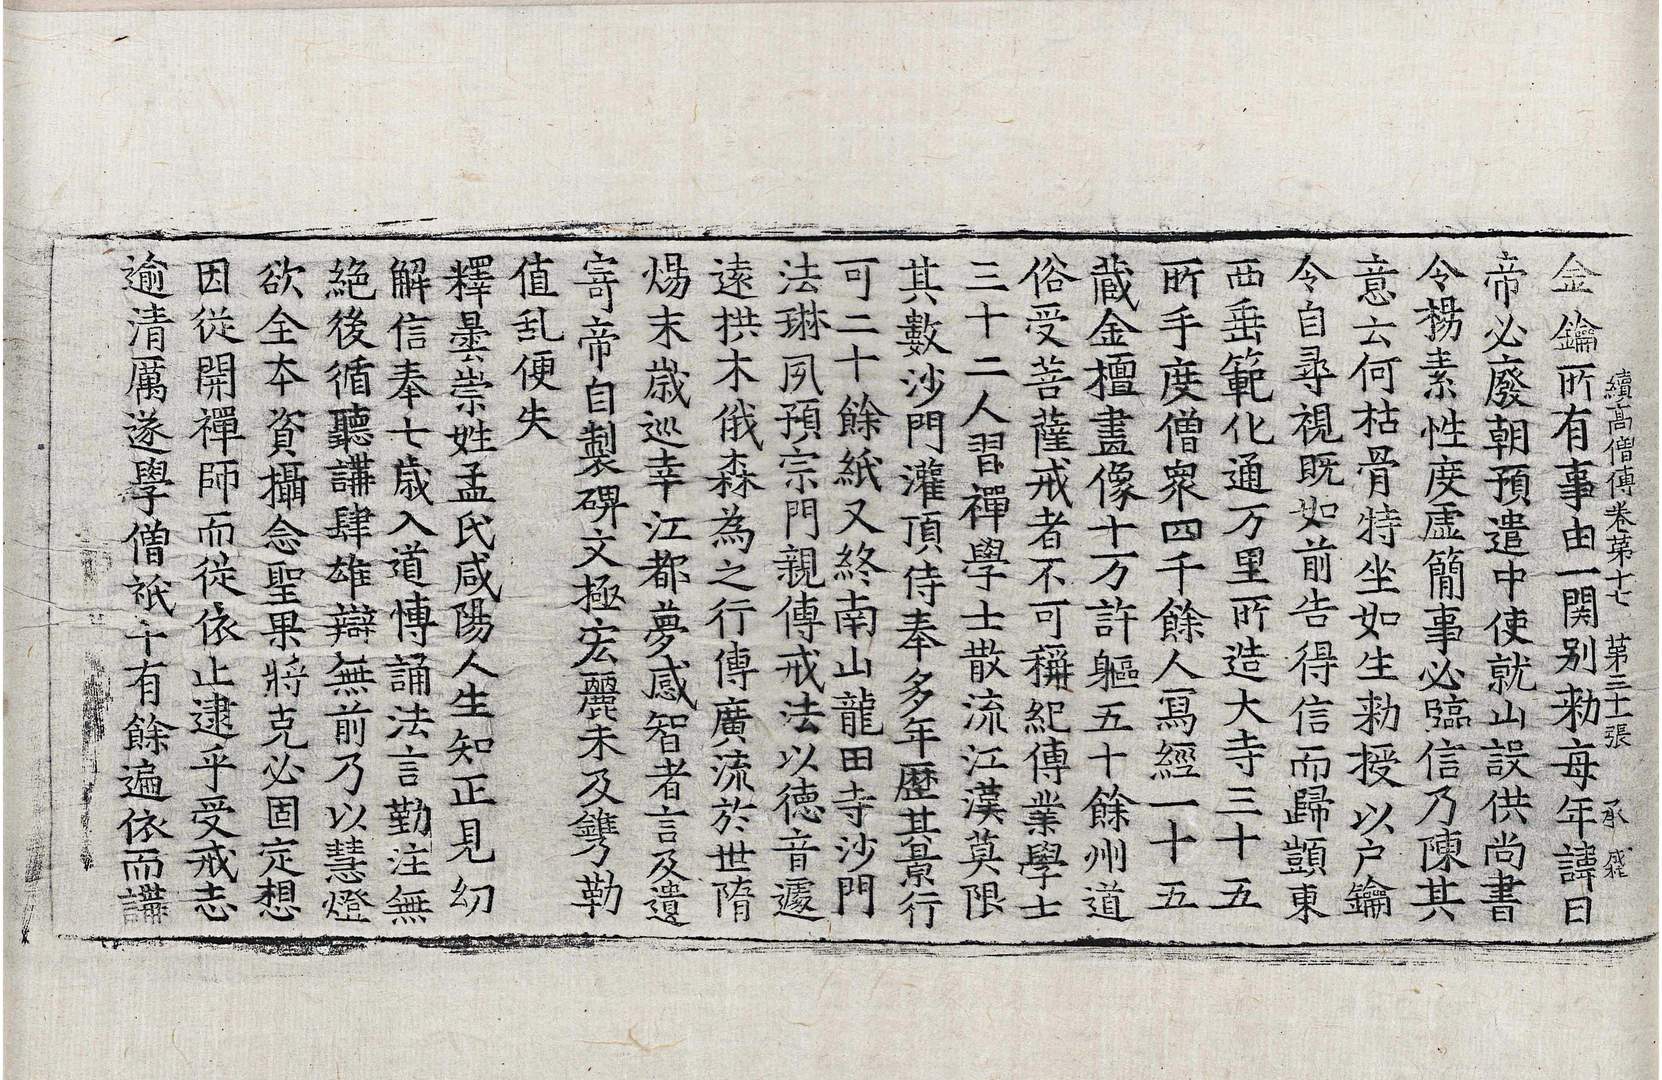 續高僧傳卷苐十七 苐三十一張 承 戚
金鑰所有事由一関別勑每年諱日
帝必廢朝預遣中使就山設供尚書
令楊素性度虛簡事必臨信乃陳其
意云何枯骨特坐如生勑授以户鑰
令自㝷視既如前告得信而歸顗東
西垂範化通万里所造大寺三十五
所手度僧衆四千餘人寫經一十五
藏金檀畫像十万許軀五十餘州道
俗受菩薩戒者不可稱紀傳業學士
三十二人習禪學士散流江漢莫限
其數沙門灌頂侍奉多年歷其景行
可二十餘紙又終南山龍田寺沙門
法琳夙預宗門親傳戒法以德音遽
遠拱木俄森為之行傳廣流於世隋
煬末歲巡幸江都夢感智者言及遺
寄帝自製碑文極宏麗未及鐫勒
值乱便失
釋曇崇姓孟氏咸陽人生知正見幼
解信奉七歲入道博誦法言勤注無
絕後循聽講肆雄辯無前乃以慧燈
欲全本資攝念聖果將克必固定想
因從開禪師而從依止逮乎受戒志
逾清厲遂學僧祇十有餘遍依而講